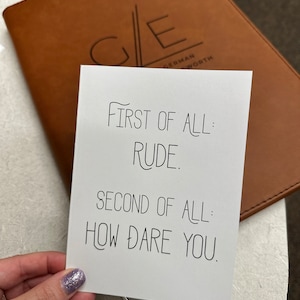 G E
FIRST OF ALL:
RUDE.
SECOND OF ALL:
HOW DARE YOU.